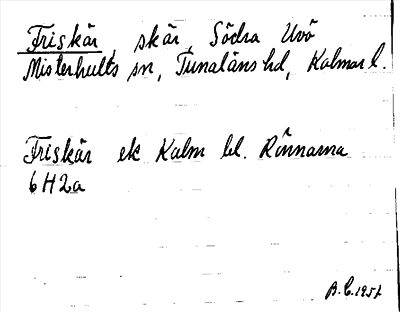 Friskär, skär, Södra Uvö
Misterhults sn, Tunaläns hd, Kalmar l.
Friskär ek Kalm bl. Rönnarna
6H2a
B.C. 1951